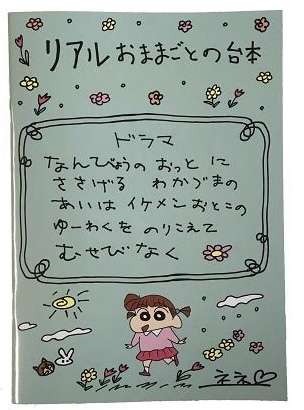 リアルおままごとの台本
ドラマ
なんびょうの おっと に
ささげる わかづまの
あいは イケメン おとこの
ゆーわくを のりこえて
むせびなく
ネネ♡